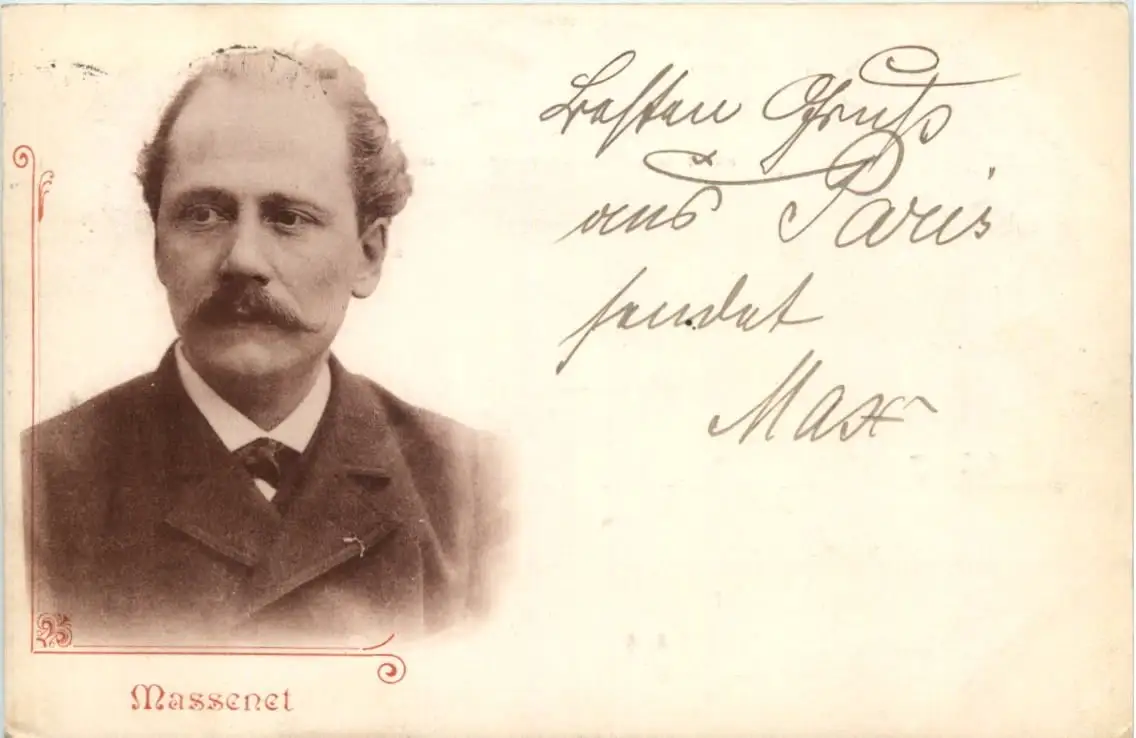 Besten Gruß
aus Paris
sendet
Max
Massenet